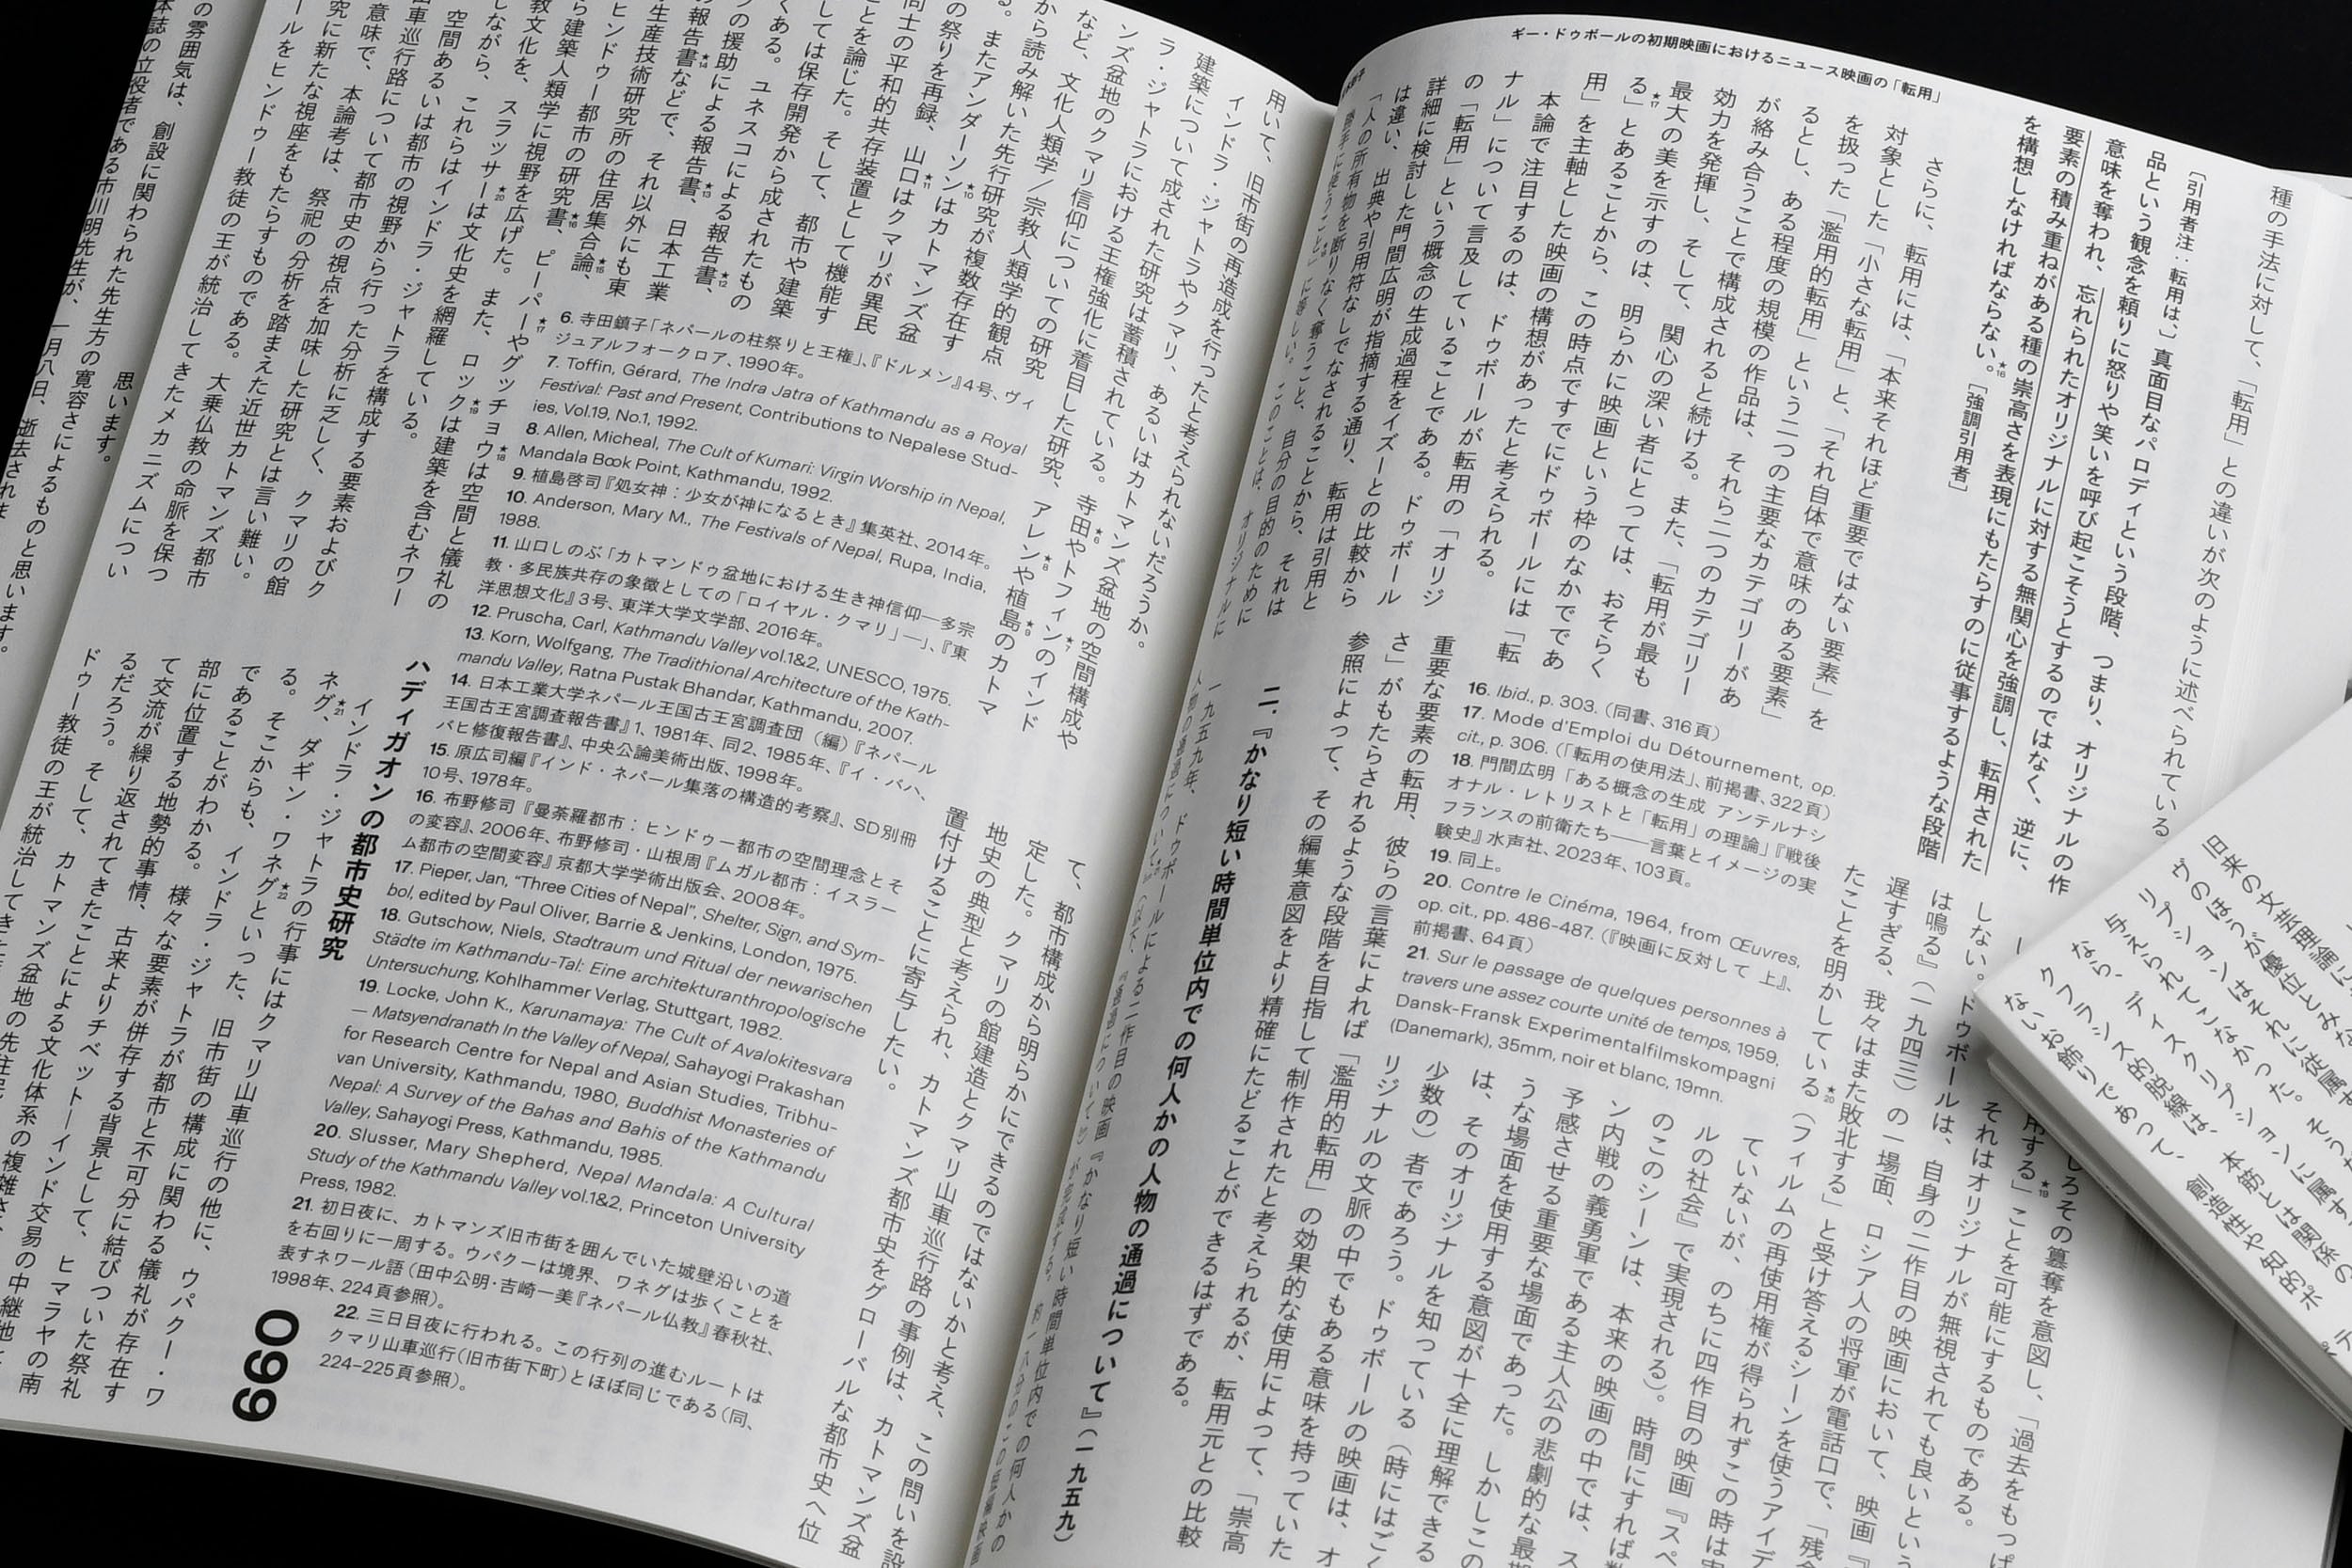 ギー・ドゥボールの初期映画におけるニュース映画の「転用」
種の手法に対して、「転用」との違いが次のように述べられている
［引用者注：転用は、］真面目なパロディという段階、つまり、オリジナルの作
品という観念を頼りに怒りや笑いを呼び起こそうとするのではなく、逆に、
意味を奪われ、忘れられたオリジナルに対する無関心を強調し、転用された
要素の積み重ねがある種の崇高さを表現にもたらすのに従事するような段階
を構想しなければならない。★16［強調引用者］
さらに、転用には、「本来それほど重要ではない要素」を
対象とした「小さな転用」と、「それ自体で意味のある要素」
を扱った「濫用的転用」という二つの主要なカテゴリーがあ
るとし、ある程度の規模の作品は、それら二つのカテゴリー
が絡み合うことで構成されると続ける。また、「転用が最も
効力を発揮し、そして、関心の深い者にとっては、おそらく
最大の美を示すのは、明らかに映画という枠のなかでであ
る」★17とあることから、この時点ですでにドゥボールには「転
用」を主軸とした映画の構想があったと考えられる。
本論で注目するのは、ドゥボールが転用の「オリジ
ナル」について言及していることである。ドゥボール
の「転用」という概念の生成過程をイズーとの比較から
詳細に検討した門間広明が指摘する通り、転用は引用と
は違い、出典や引用符なしでなされることから、それは
「人の所有物を断りなく奪うこと、自分の目的のために
16. Ibid., p. 303.（同書、316頁）
17. Mode d'Emploi du Détournement, op.
cit., p. 306.（「転用の使用法」、前掲書、322頁）
18. 門間広明「ある概念の生成 アンテルナシ
オナル・レトリストと「転用」の理論」『戦後
フランスの前衛たち――言葉とイメージの実
験史』水声社、2023年、103頁。
19. 同上。
20. Contre le Cinéma, 1964, from Œuvres,
op. cit., pp. 486-487.（『映画に反対して 上』、
前掲書、64頁）
21. Sur le passage de quelques personnes à
travers une assez courte unité de temps, 1959,
Dansk-Fransk Experimentalfilmskompagni
(Danemark), 35mm, noir et blanc, 19mn.
しろその簒奪を意図し、「過去をもっぱ
用する」★19ことを可能にするものである。
それはオリジナルが無視されても良いという
しない。ドゥボールは、自身の二作目の映画において、映画『
は鳴る』（一九四三）の一場面、ロシア人の将軍が電話口で、「残念
遅すぎる、我々はまた敗北する」と受け答えるシーンを使うアイデ
たことを明かしている★20（フィルムの再使用権が得られずこの時は実
ていないが、のちに四作目の映画『スペ
ルの社会』で実現される）。時間にすれば数
のこのシーンは、本来の映画の中では、ス
ン内戦の義勇軍である主人公の悲劇的な最期
予感させる重要な場面であった。しかしこの
うな場面を使用する意図が十全に理解できる
は、そのオリジナルを知っている（時にはごく
少数の）者であろう。ドゥボールの映画は、オ
リジナルの文脈の中でもある意味を持っていた
重要な要素の転用、彼らの言葉によれば「濫用的転用」の効果的な使用によって、「崇高
さ」がもたらされるような段階を目指して制作されたと考えられるが、転用元との比較
参照によって、その編集意図をより精確にたどることができるはずである。
二．『かなり短い時間単位内での何人かの人物の通過について』（一九五九）
旧来の文芸理論に
ヴのほうが優位とみな
リプションはそれに従属す
与えられてこなかった。そうし
なら、ディスクリプションに属す
クフラシス的脱線は、本筋とは関係の
ないお飾りであって、創造性や知的ポ
用いて、旧市街の再造成を行ったと考えられないだろうか。
インドラ・ジャトラやクマリ、あるいはカトマンズ盆地の空間構成や
建築について成された研究は蓄積されている。寺田★6やトフィン★7のインド
ラ・ジャトラにおける王権強化に着目した研究、アレン★8や植島★9のカトマ
ンズ盆地のクマリ信仰についての研究
など、文化人類学／宗教人類学的観点
から読み解いた先行研究が複数存在す
る。またアンダーソン★10はカトマンズ盆
の祭りを再録、山口★11はクマリが異民
同士の平和的共存装置として機能す
ことを論じた。そして、都市や建築
しては保存開発から成されたもの
くある。ユネスコによる報告書、★12
の援助による報告書、★13日本工業
の報告書★14などで、それ以外にも東
生産技術研究所の住居集合論、★15
ヒンドゥー都市の研究書、★16ピーパー★17やグッチョウ★18は空間と儀礼の
ら建築人類学に視野を広げた。また、ロック★19は建築を含むネワー
教文化を、スラッサー★20は文化史を網羅している。
しながら、これらはインドラ・ジャトラを構成する要素およびク
空間あるいは都市の視野から行った分析に乏しく、クマリの館
山車巡行路について都市史の視点を加味した研究とは言い難い。
意味で、本論考は、祭祀の分析を踏まえた近世カトマンズ都市
究に新たな視座をもたらすものである。大乗仏教の命脈を保つ
ールをヒンドゥー教徒の王が統治してきたメカニズムについ
て、都市構成から明らかにできるのではないかと考え、この問いを設
定した。クマリの館建造とクマリ山車巡行路の事例は、カトマンズ盆
地史の典型と考えられ、カトマンズ都市史をグローバルな都市史へ位
置付けることに寄与したい。
6. 寺田鎮子「ネパールの柱祭りと王権」、『ドルメン』4号、ヴィ
ジュアルフォークロア、1990年。
7. Toffin, Gérard, The Indra Jatra of Kathmandu as a Royal
Festival: Past and Present, Contributions to Nepalese Stud-
ies, Vol.19, No.1, 1992.
8. Allen, Micheal, The Cult of Kumari: Virgin Worship in Nepal,
Mandala Book Point, Kathmandu, 1992.
9. 植島啓司『処女神：少女が神になるとき』集英社、2014年。
10. Anderson, Mary M., The Festivals of Nepal, Rupa, India,
1988.
11. 山口しのぶ「カトマンドゥ盆地における生き神信仰―多宗
教・多民族共存の象徴としての「ロイヤル・クマリ」―」、『東
洋思想文化』3号、東洋大学文学部、2016年。
12. Pruscha, Carl, Kathmandu Valley vol.1&2, UNESCO, 1975.
13. Korn, Wolfgang, The Tradithional Architecture of the Kath-
mandu Valley, Ratna Pustak Bhandar, Kathmandu, 2007.
14. 日本工業大学ネパール王国古王宮調査団（編）『ネパール
王国古王宮調査報告書』1、1981年、同2、1985年、『イ・バハ、
バヒ修復報告書』、中央公論美術出版、1998年。
15. 原広司編『インド・ネパール集落の構造的考察』、SD別冊
10号、1978年。
16. 布野修司『曼荼羅都市：ヒンドゥー都市の空間理念とそ
の変容』、2006年、布野修司・山根周『ムガル都市：イスラー
ム都市の空間変容』京都大学学術出版会、2008年。
17. Pieper, Jan, “Three Cities of Nepal”, Shelter, Sign, and Sym-
bol, edited by Paul Oliver, Barrie & Jenkins, London, 1975.
18. Gutschow, Niels, Stadtraum und Ritual der newarischen
Städte im Kathmandu-Tal: Eine architekturanthropologische
Untersuchung, Kohlhammer Verlag, Stuttgart, 1982.
19. Locke, John K., Karunamaya: The Cult of Avalokitesvara
— Matsyendranath in the Valley of Nepal, Sahayogi Prakashan
for Research Centre for Nepal and Asian Studies, Tribhu-
van University, Kathmandu, 1980, Buddhist Monasteries of
Nepal: A Survey of the Bahas and Bahis of the Kathmandu
Valley, Sahayogi Press, Kathmandu, 1985.
20. Slusser, Mary Shepherd, Nepal Mandala: A Cultural
Study of the Kathmandu Valley vol.1&2, Princeton University
Press, 1982.
21. 初日夜に、カトマンズ旧市街を囲んでいた城壁沿いの道
を右回りに一周する。ウパクーは境界、ワネグは歩くことを
表すネワール語（田中公明・吉崎一美『ネパール仏教』春秋社、
1998年、224頁参照）。
22. 三日目夜に行われる。この行列の進むルートは
クマリ山車巡行（旧市街下町）とほぼ同じである（同、
224-225頁参照）。
ハディガオンの都市史研究
インドラ・ジャトラの行事にはクマリ山車巡行の他に、ウパクー・ワ
ネグ、★21ダギン・ワネグ★22といった、旧市街の構成に関わる儀礼が存在す
る。そこからも、インドラ・ジャトラが都市と不可分に結びついた祭礼
であることがわかる。様々な要素が併存する背景として、ヒマラヤの南
部に位置する地勢的事情、古来よりチベット―インド交易の中継地と
て交流が繰り返されてきたことによる文化体系の複雑さ、
るだろう。そして、カトマンズ盆地の先住民
ドゥー教徒の王が統治してきた
090
思います。
の雰囲気は、創設に関わられた先生方の寛容さによるものと思います。
本誌の立役者である市川明先生が、一月八日、逝去されま